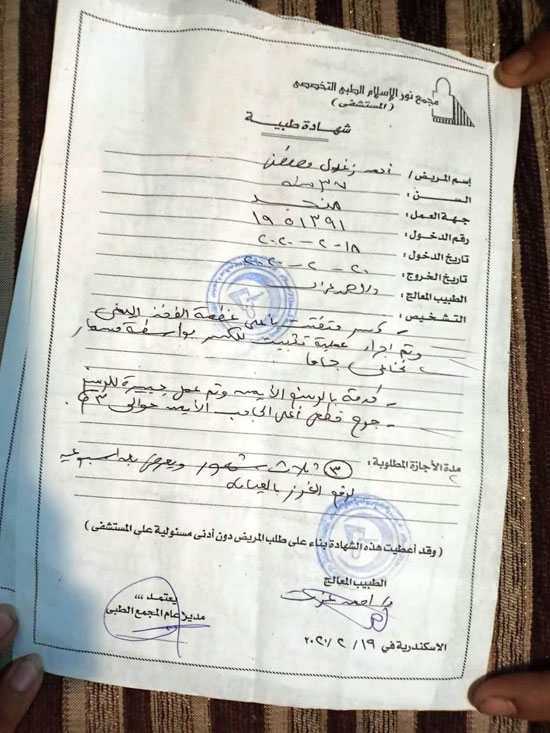 مجمع نور الإسلام الطبى التخصصى
( المستشفى )
شهادة طبية
إسم المريض / احمد زغلول
الســـن : ٣٧ سنة
جهة العمل : منجد
رقم الدخول : ١٩٥١٣٩١
تاريخ الدخول : ١٨-٢-٢٠٢٠
تاريخ الخروج : ٢٠-٢-٢٠٢٠
الطبيب المعالج : د/ احمد
التشخيص : - كسر متفتت بأعلى عظمة الفخذ اليمنى
وتم إجراء عملية تثبيت للكسر بواسطة مسمار
نخاعى
- كدمة بالرسغ الأيمن وتم عمل جبيرة للرسغ
- جرح قطعى أعلى الحاجب الأيمن حوالى ٣ سم .
مدة الأجازة المطلوبة : (٣) ثلاث شهور ويعرض بعد اسبوعين
لرفع الغرز بالعيادة
( وقد أعطيت هذه الشهادة بناء على طلب المريض دون أدنى مسئولية على المستشفى )
الطبيب المعالج
د/ احمد
يعتمد ،،،
مدير عام المجمع الطبى
الاسكندرية في ١٩ / ٢ / ٢٠٢٠